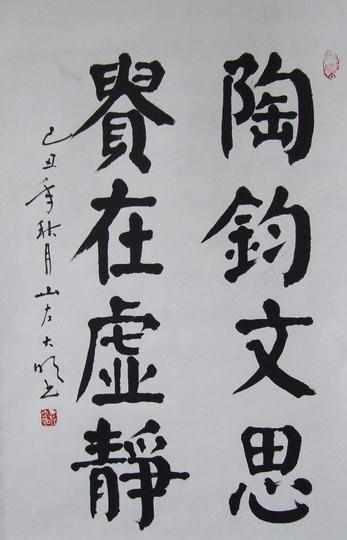 陶鈞文思
貴在虛靜
己丑年秋月山左大順书